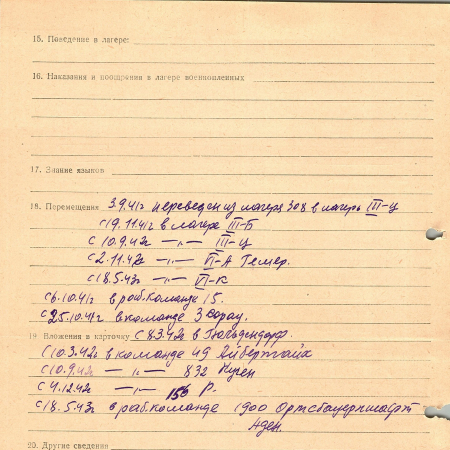 15. Поведение в лагере:
16. Наказания и поощрения в лагере военнопленных
17. Знание языков
18. Перемещения 3.9.41г переведен из лагеря 308 в лагерь III-Ц
с 19.11.41г в лагере III-Б
с 10.9.42г —„— III-Ц
с 2.11.42г —„— VI-А Гемер.
с 18.5.43г —„— VI-К
с 6.10.41г в раб.команде 15.
с 25.10.41г в команде 3 Зорау.
19 Вложения в карточку с 8.3.42г в Гюльдендорф.
с 10.3.42г в команде 49
с 10.9.42г —„— 832
с 4.12.42г —„— 156 Р.
с 18.5.43г в раб.команде 1900 Ортсбауерншафт
Аден.
20. Другие сведения